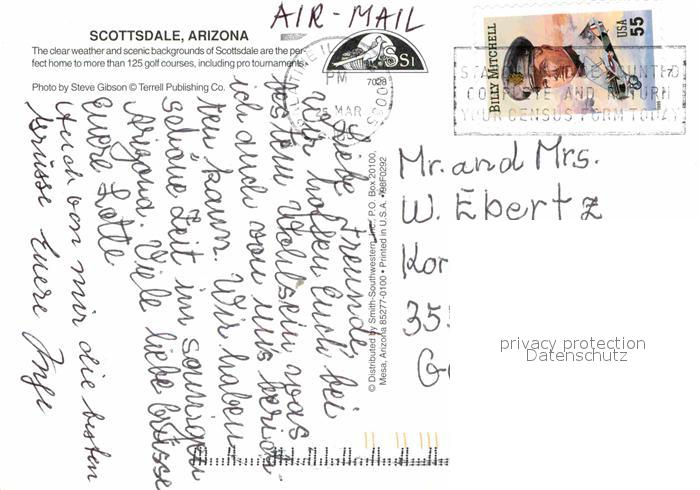 AIR-MAIL
SCOTTSDALE, ARIZONA
The clear weather and scenic backgrounds of Scottsdale are the per-
fect home to more than 125 golf courses, including pro tournaments.
Photo by Steve Gibson © Terrell Publishing Co.
SS1
7028
PM
25 MAR
BILLY MITCHELL
USA
55
STAND UP AND BE COUNTED
COMPLETE AND RETURN
YOUR CENSUS FORM TODAY
© Distributed by Smith-Southwestern, Inc., P.O. Box 20100,
Mesa, Arizona 85277-0100 • Printed in U.S.A. • 98F0292
Liebe Freunde,
wir hoffen Euch bei
bestem Wohlsein was
ich auch von uns berich-
ten kann. Wir haben
schöne Zeit im sonnigen
Arizona. Viele liebe Grüsse
Euere Lotte
Auch von mir die besten
Grüsse Euere Inge
Mr. and Mrs.
W. Ebertz
Kor
35
G
privacy protection
Datenschutz